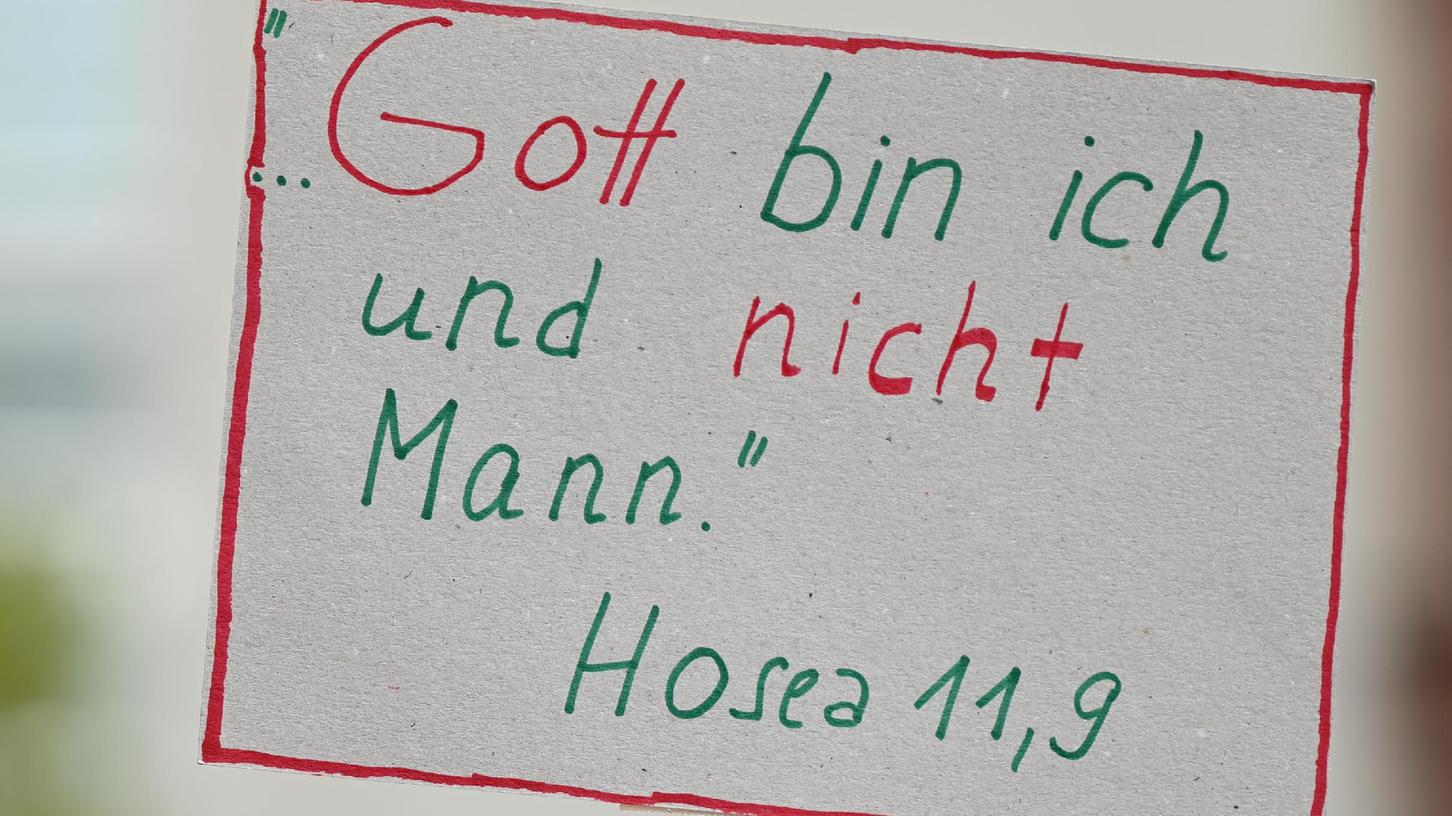 "... Gott bin ich
und nicht
Mann."
Hosea 11,9